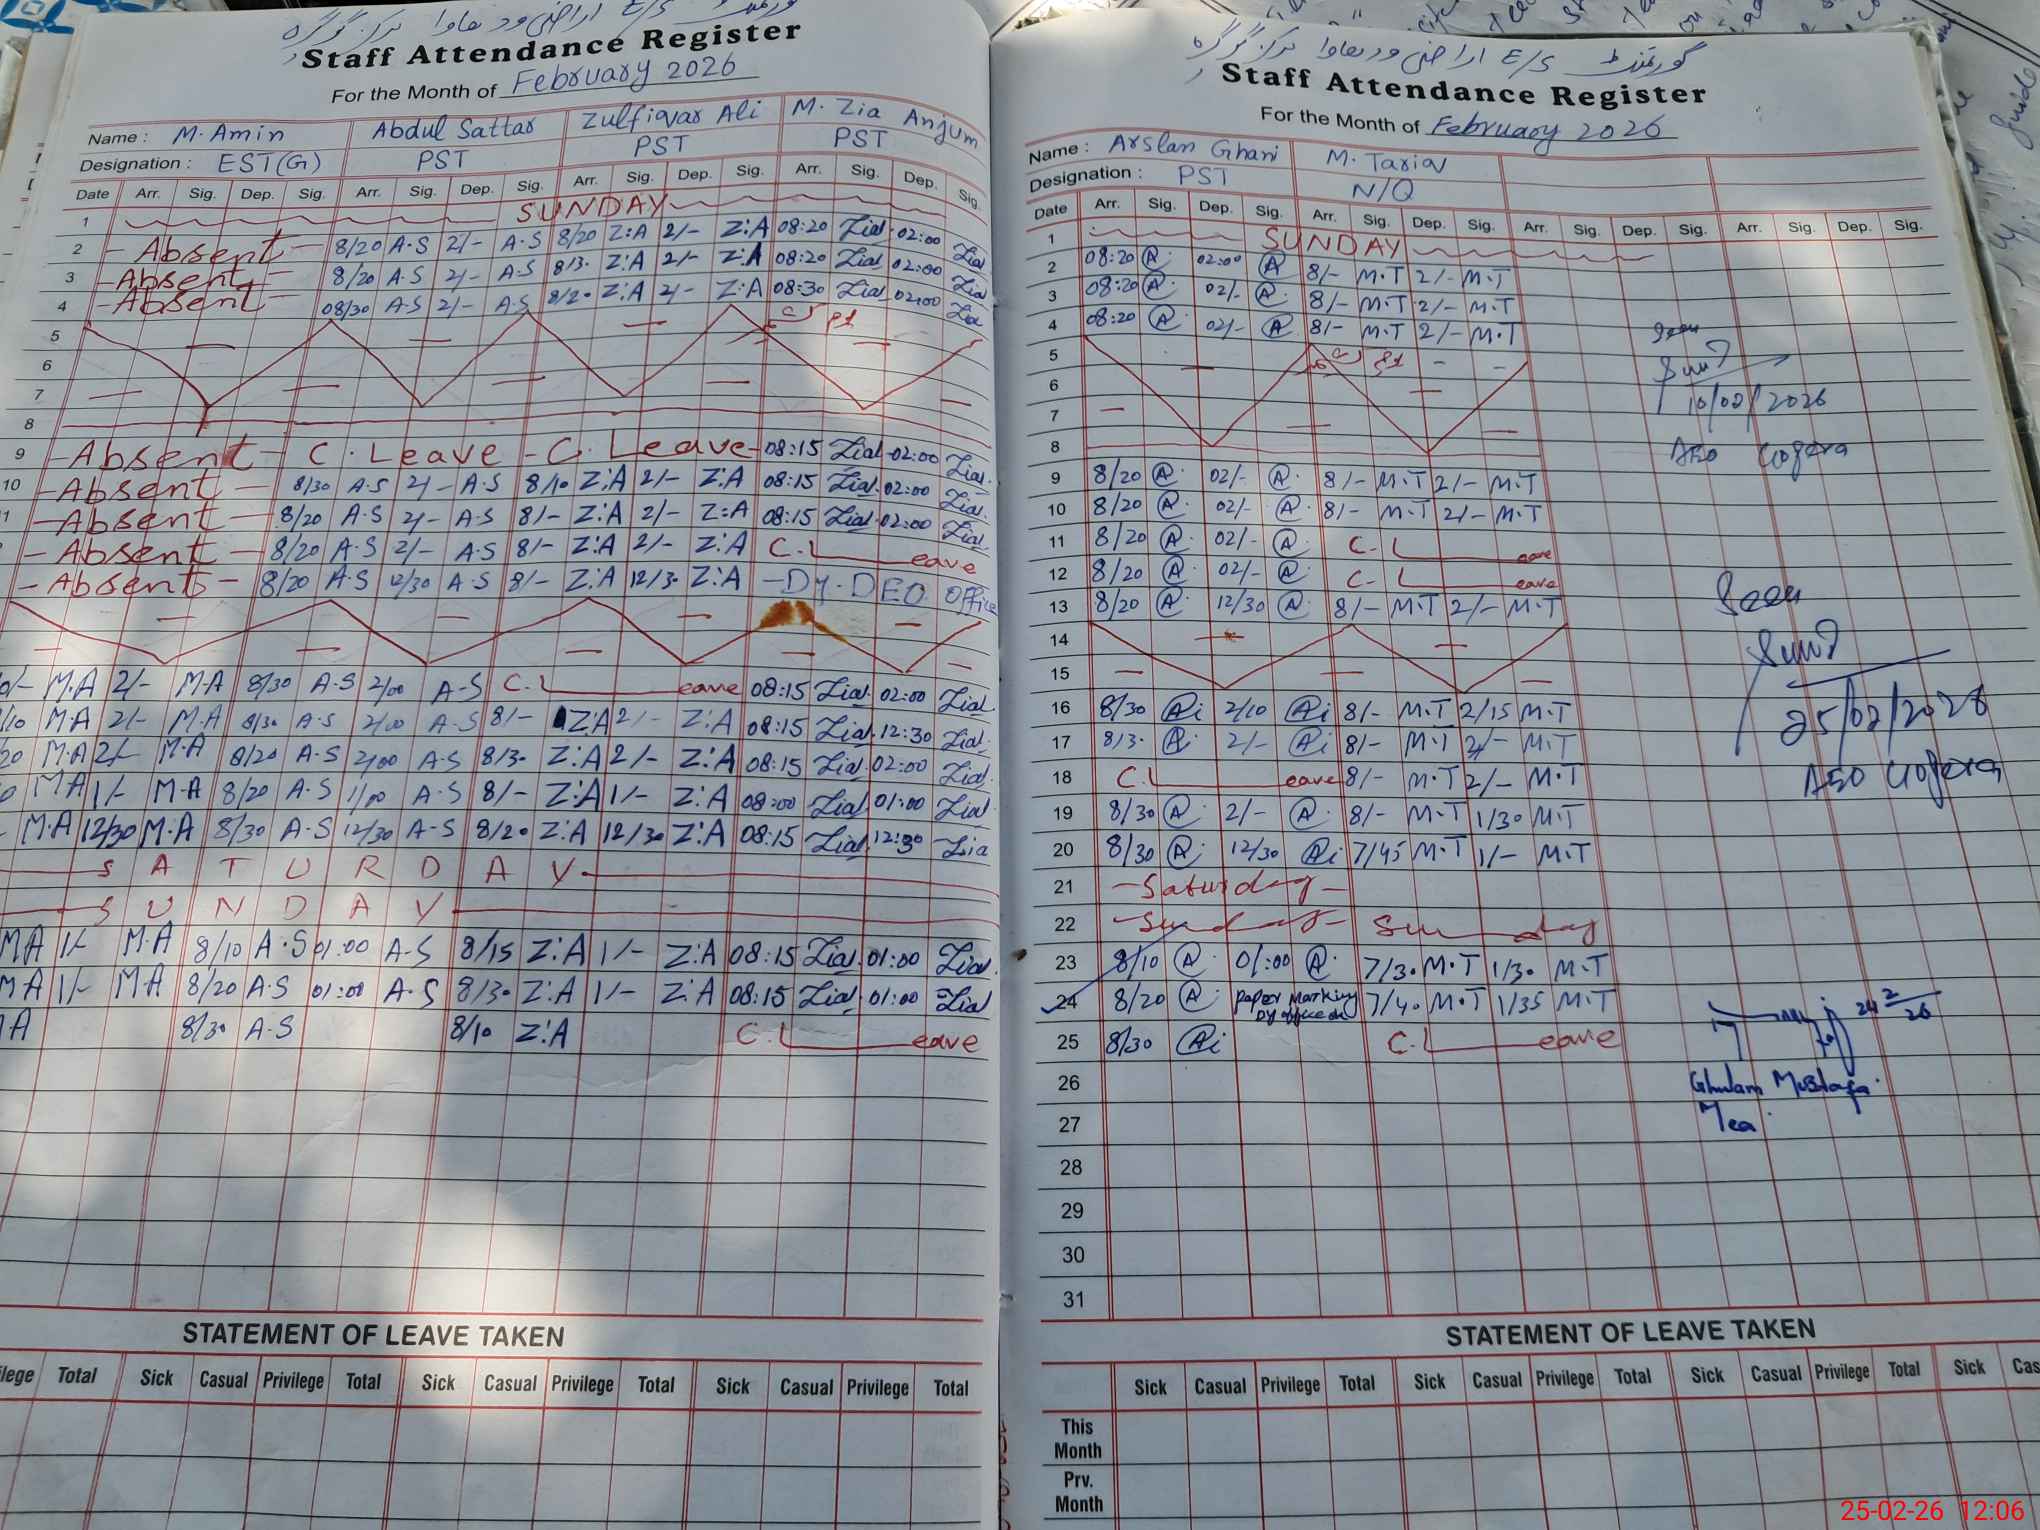 گورنمنٹ E/S اراضی ودھاوا مرکز گوگیرہ
Staff Attendance Register
For the Month of February 2026
Name : M. Amin Abdul Sattar Zulfiqar Ali M. Zia Anjum
Designation : EST(G) PST PST PST
Date Arr. Sig. Dep. Sig. Arr. Sig. Dep. Sig. Arr. Sig. Dep. Sig. Arr. Sig. Dep. Sig.
1 SUNDAY
2 - Absent - 8/20 A.S 2/- A.S 8/20 Z.A 2/- Z.A 08:20 Zia 02:00 Zia
3 - Absent - 8/20 A.S 2/- A.S 8/3. Z.A 2/- Z.A 08:20 Zia 02:00 Zia
4 - Absent - 08/30 A-S 2/- A-S 8/20 Z.A 2/- Z.A 08:30 Zia 02:00 Zia
5
6
7
8
9 - Absent - C. Leave - C. Leave - 08:15 Zia 02:00 Zia
10 - Absent - 8/30 A-S 2/- A-S 8/10 Z.A 2/- Z.A 08:15 Zia 02:00 Zia
- Absent - 8/20 A.S 2/- A-S 8/- Z.A 2/- Z.A 08:15 Zia 02:00 Zia
- Absent - 8/20 A.S 2/- A-S 8/- Z.A 2/- Z.A C. Leave
- Absent - 8/20 A.S 12/30 A-S 8/- Z.A 12/3. Z.A - Dy. DEO office
M.A 2/- M.A 8/30 A-S 2/00 A-S C. Leave 08:15 Zia 02:00 Zia
/10 M.A 2/- M.A 8/30 A-S 2/00 A-S 8/- Z.A 2/- Z.A 08:15 Zia 12:30 Zia
20 M.A 2/- M.A 8/20 A-S 2/00 A-S 8/3. Z.A 2/- Z.A 08:15 Zia 02:00 Zia
MA 1/- M.A 8/20 A-S 1/00 A-S 8/- Z.A 1/- Z.A 08:00 Zia 01:00 Zia
M.A 12/30 M.A 8/30 A-S 12/30 A-S 8/20 Z.A 12/30 Z.A 08:15 Zia 12:30 Zia
SATURDAY
SUNDAY
MA 1/- M.A 8/10 A.S 01:00 A-S 8/15 Z.A 1/- Z.A 08:15 Zia 01:00 Zia
MA 1/- M.A 8/20 A.S 01:00 A.S 8/30 Z.A 1/- Z.A 08:15 Zia 01:00 Zia
A 8/30 A-S 8/10 Z.A C. Leave
STATEMENT OF LEAVE TAKEN
ilege Total Sick Casual Privilege Total Sick Casual Privilege Total Sick Casual Privilege Total
گورنمنٹ E/S اراضی ودھاوا مرکز گوگیرہ
Staff Attendance Register
For the Month of February 2026
Name : Arslan Ghani M. Tariq
Designation : PST N/Q
Date Arr. Sig. Dep. Sig. Arr. Sig. Dep. Sig. Arr. Sig. Dep. Sig. Arr. Sig. Dep. Sig.
1 SUNDAY
2 08:20 A 02:00 A 8/- M.T 2/- M.T
3 08:20 A 02/- A 8/- M.T 2/- M.T
4 08:20 A 02/- A 8/- M.T 2/- M.T
5
6
7
8
9 8/20 A 02/- A 8/- M.T 2/- M.T
10 8/20 A 02/- A 8/- M.T 2/- M.T
11 8/20 A 02/- A C. Leave
12 8/20 A 02/- A C. Leave
13 8/20 A 12/30 A 8/- M.T 2/- M.T
14
15
16 8/30 Ai 2/10 Ai 8/- M.T 2/15 M.T
17 8/3. A 2/- Ai 8/- M.T 2/- M.T
18 C. Leave 8/- M.T 2/- M.T
19 8/30 A 2/- A 8/- M.T 1/30 M.T
20 8/30 A 12/30 Ai 7/45 M.T 1/- M.T
21 - Saturday -
22 - Sunday - Sunday
23 8/10 A 01:00 A 7/3. M.T 1/3. M.T
24 8/20 A paper marking 7/40 M.T 1/35 M.T
25 8/30 Ai C. Leave
26
27
28
29
30
31
Seen
10/02/2026
AEO Gogera
Seen
25/02/2026
AEO Gogera
24 2/26
Ghulam Mustafa
Mea
STATEMENT OF LEAVE TAKEN
Sick Casual Privilege Total Sick Casual Privilege Total Sick Casual Privilege Total Sick Cas
This Month
Prv. Month
25-02-26 12:06